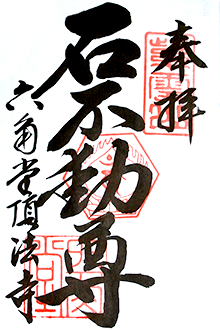 奉拝
石不動尊
六角堂頂法寺